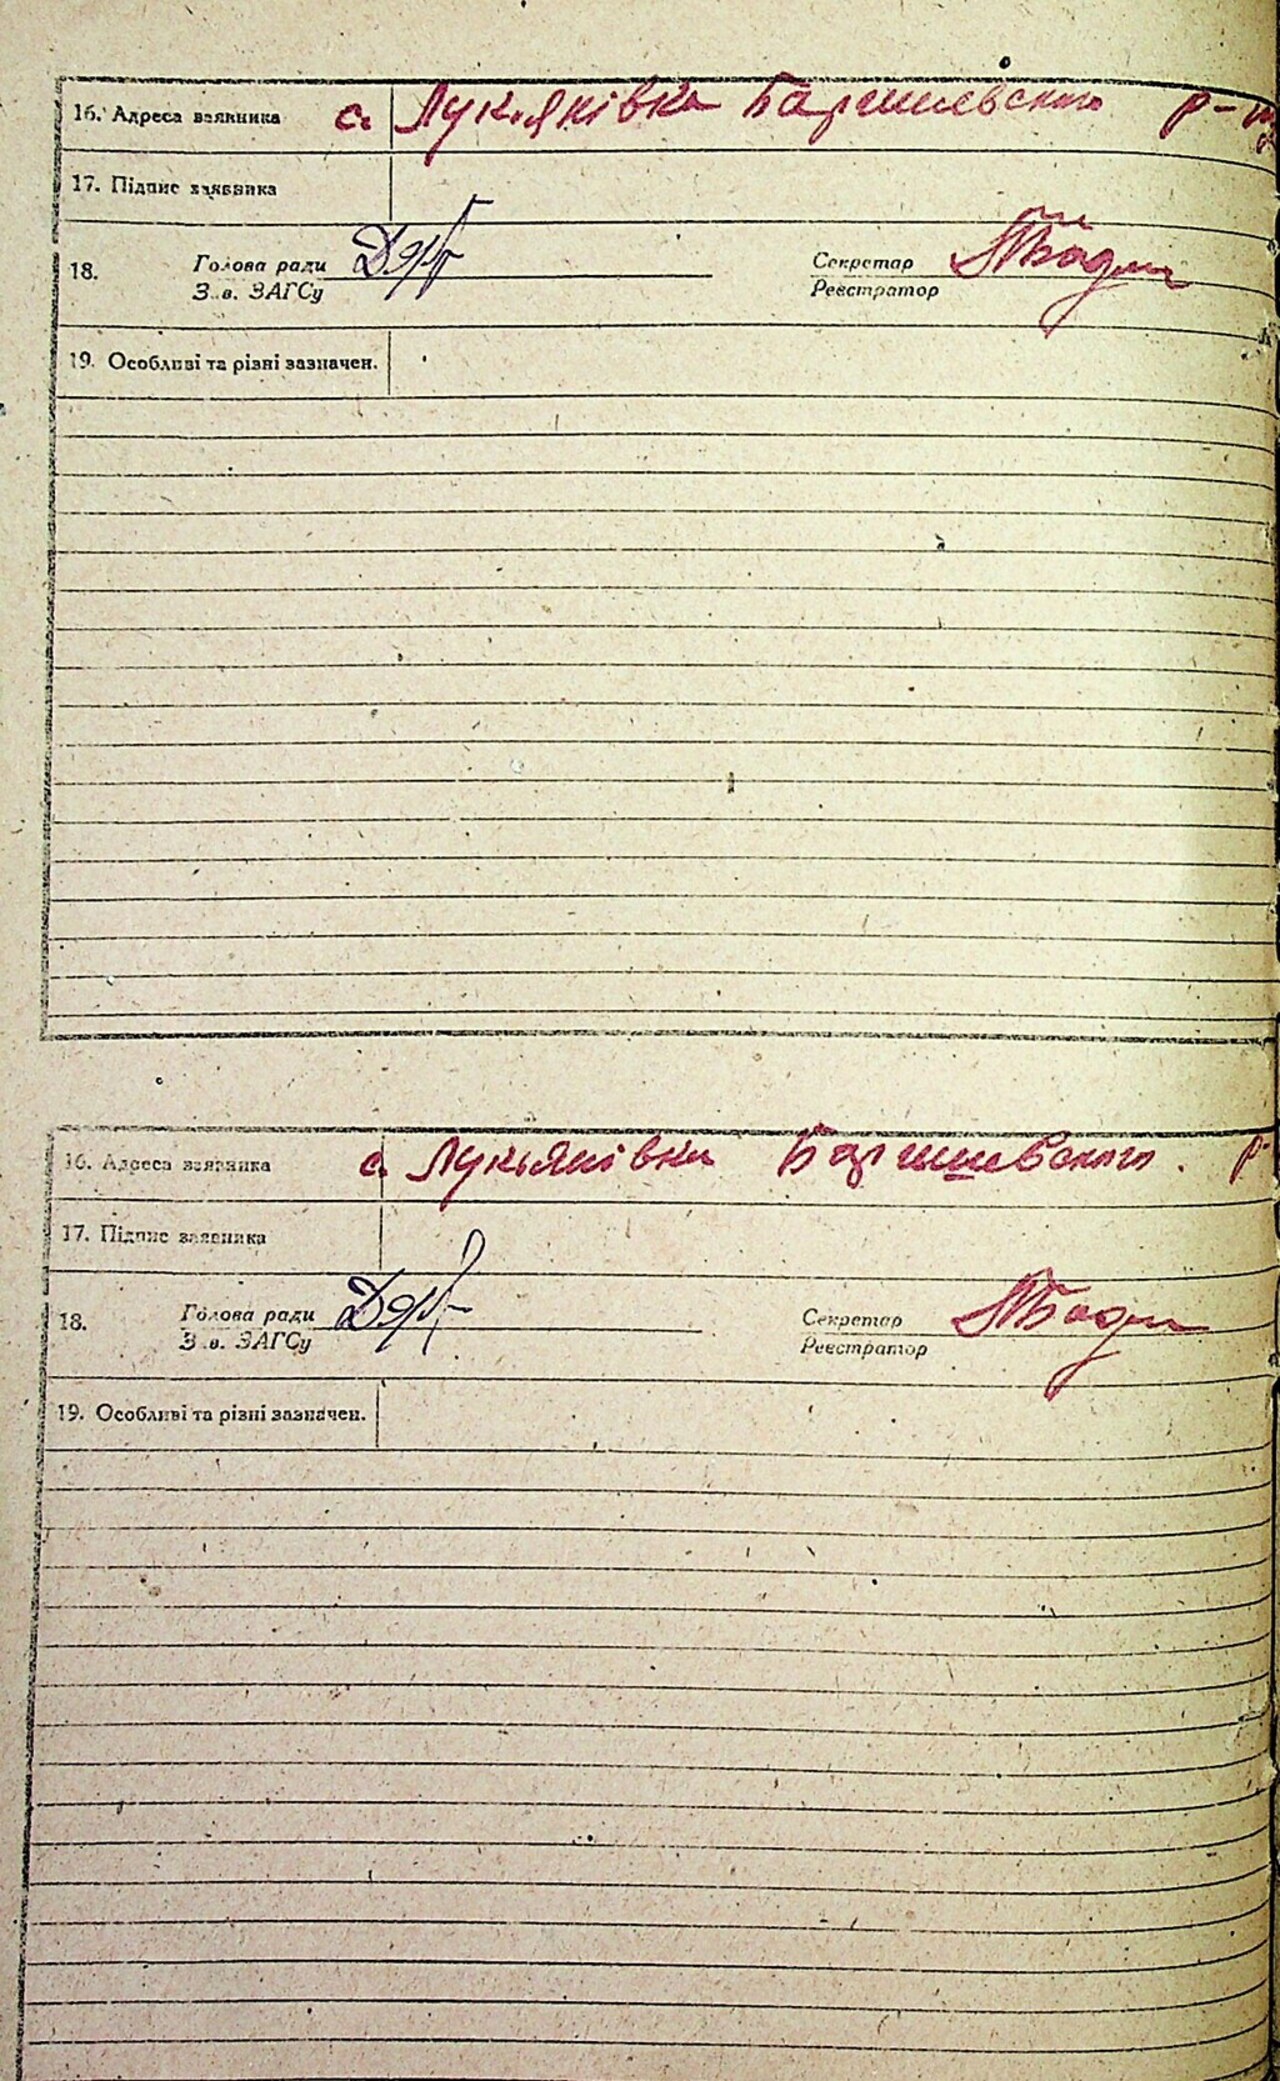 16. Адреса заявника с. Лукіянівка Баришевського р-ну
17. Підпис заявника
18. Голова ради Секретар
З. в. ЗАГСу Реєстратор
19. Особливі та різні зазначен.
16. Адреса заявника с. Лукьянівка Баришевського р-
17. Підпис заявника
18. Голова ради Секретар
З. в. ЗАГСу Реєстратор
19. Особливі та різні зазначен.